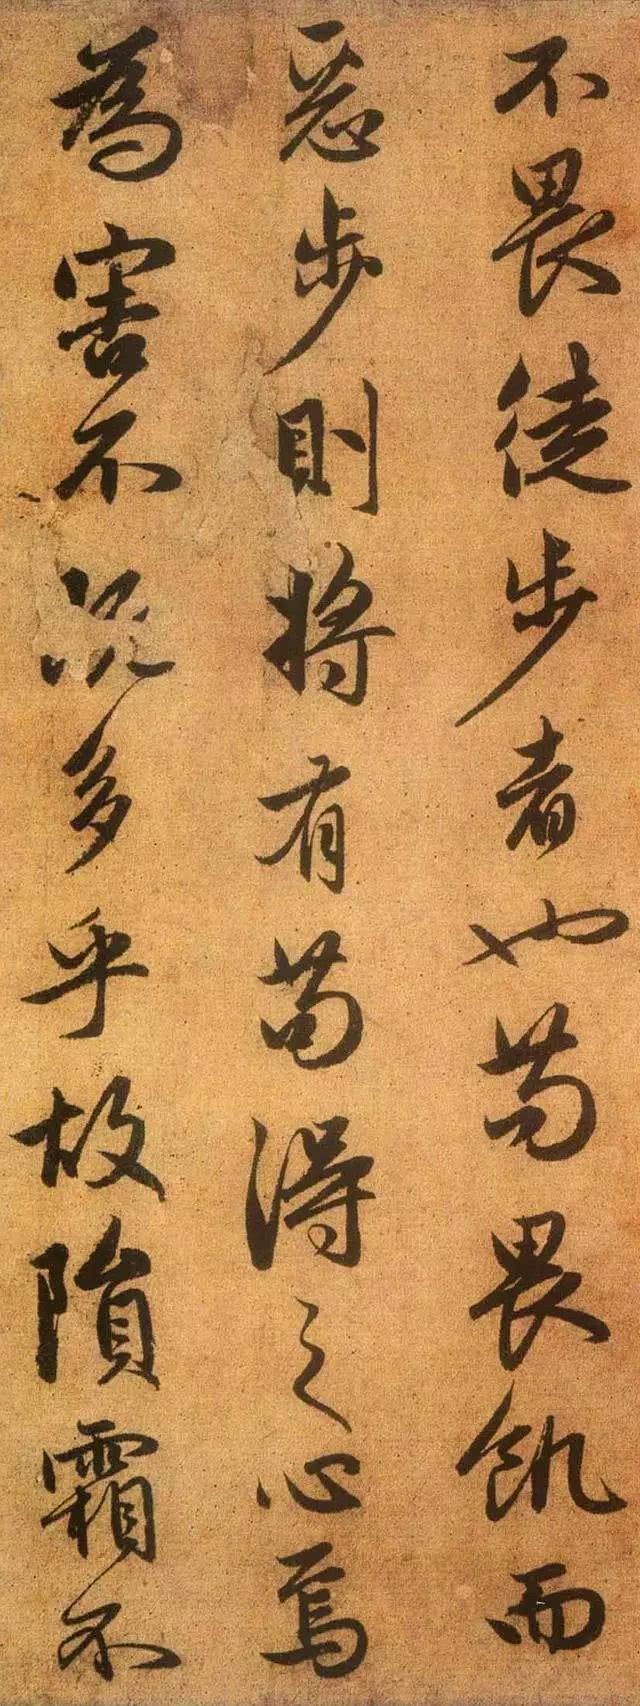 不畏徒步者也苟畏飢而
惡步則將有苟得之心焉
為害不既多乎故隕霜不